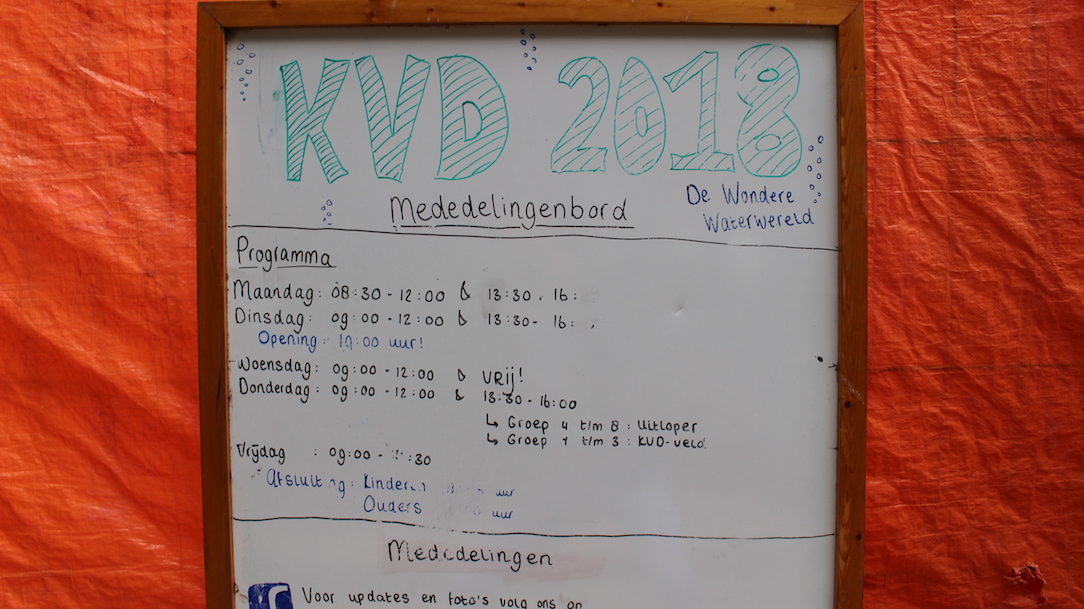 KVD 2018
Mededelingenbord
De Wondere
Waterwereld
Programma
Maandag: 08:30 - 12:00 & 13:30 - 16:
Dinsdag: 09:00 - 12:00 & 13:30 - 16:
Opening: 19:00 uur!
Woensdag: 09:00 - 12:00 & VRIJ!
Donderdag: 09:00 - 12:00 & 13:30 - 16:00
↳ Groep 4 t/m 8 : Uitloper
↳ Groep 1 t/m 3 : KVD-veld.
Vrijdag : 09:00 - :30
Afsluiting: Kinderen uur
Ouders uur
Mededelingen
Voor updates en foto's volg ons op